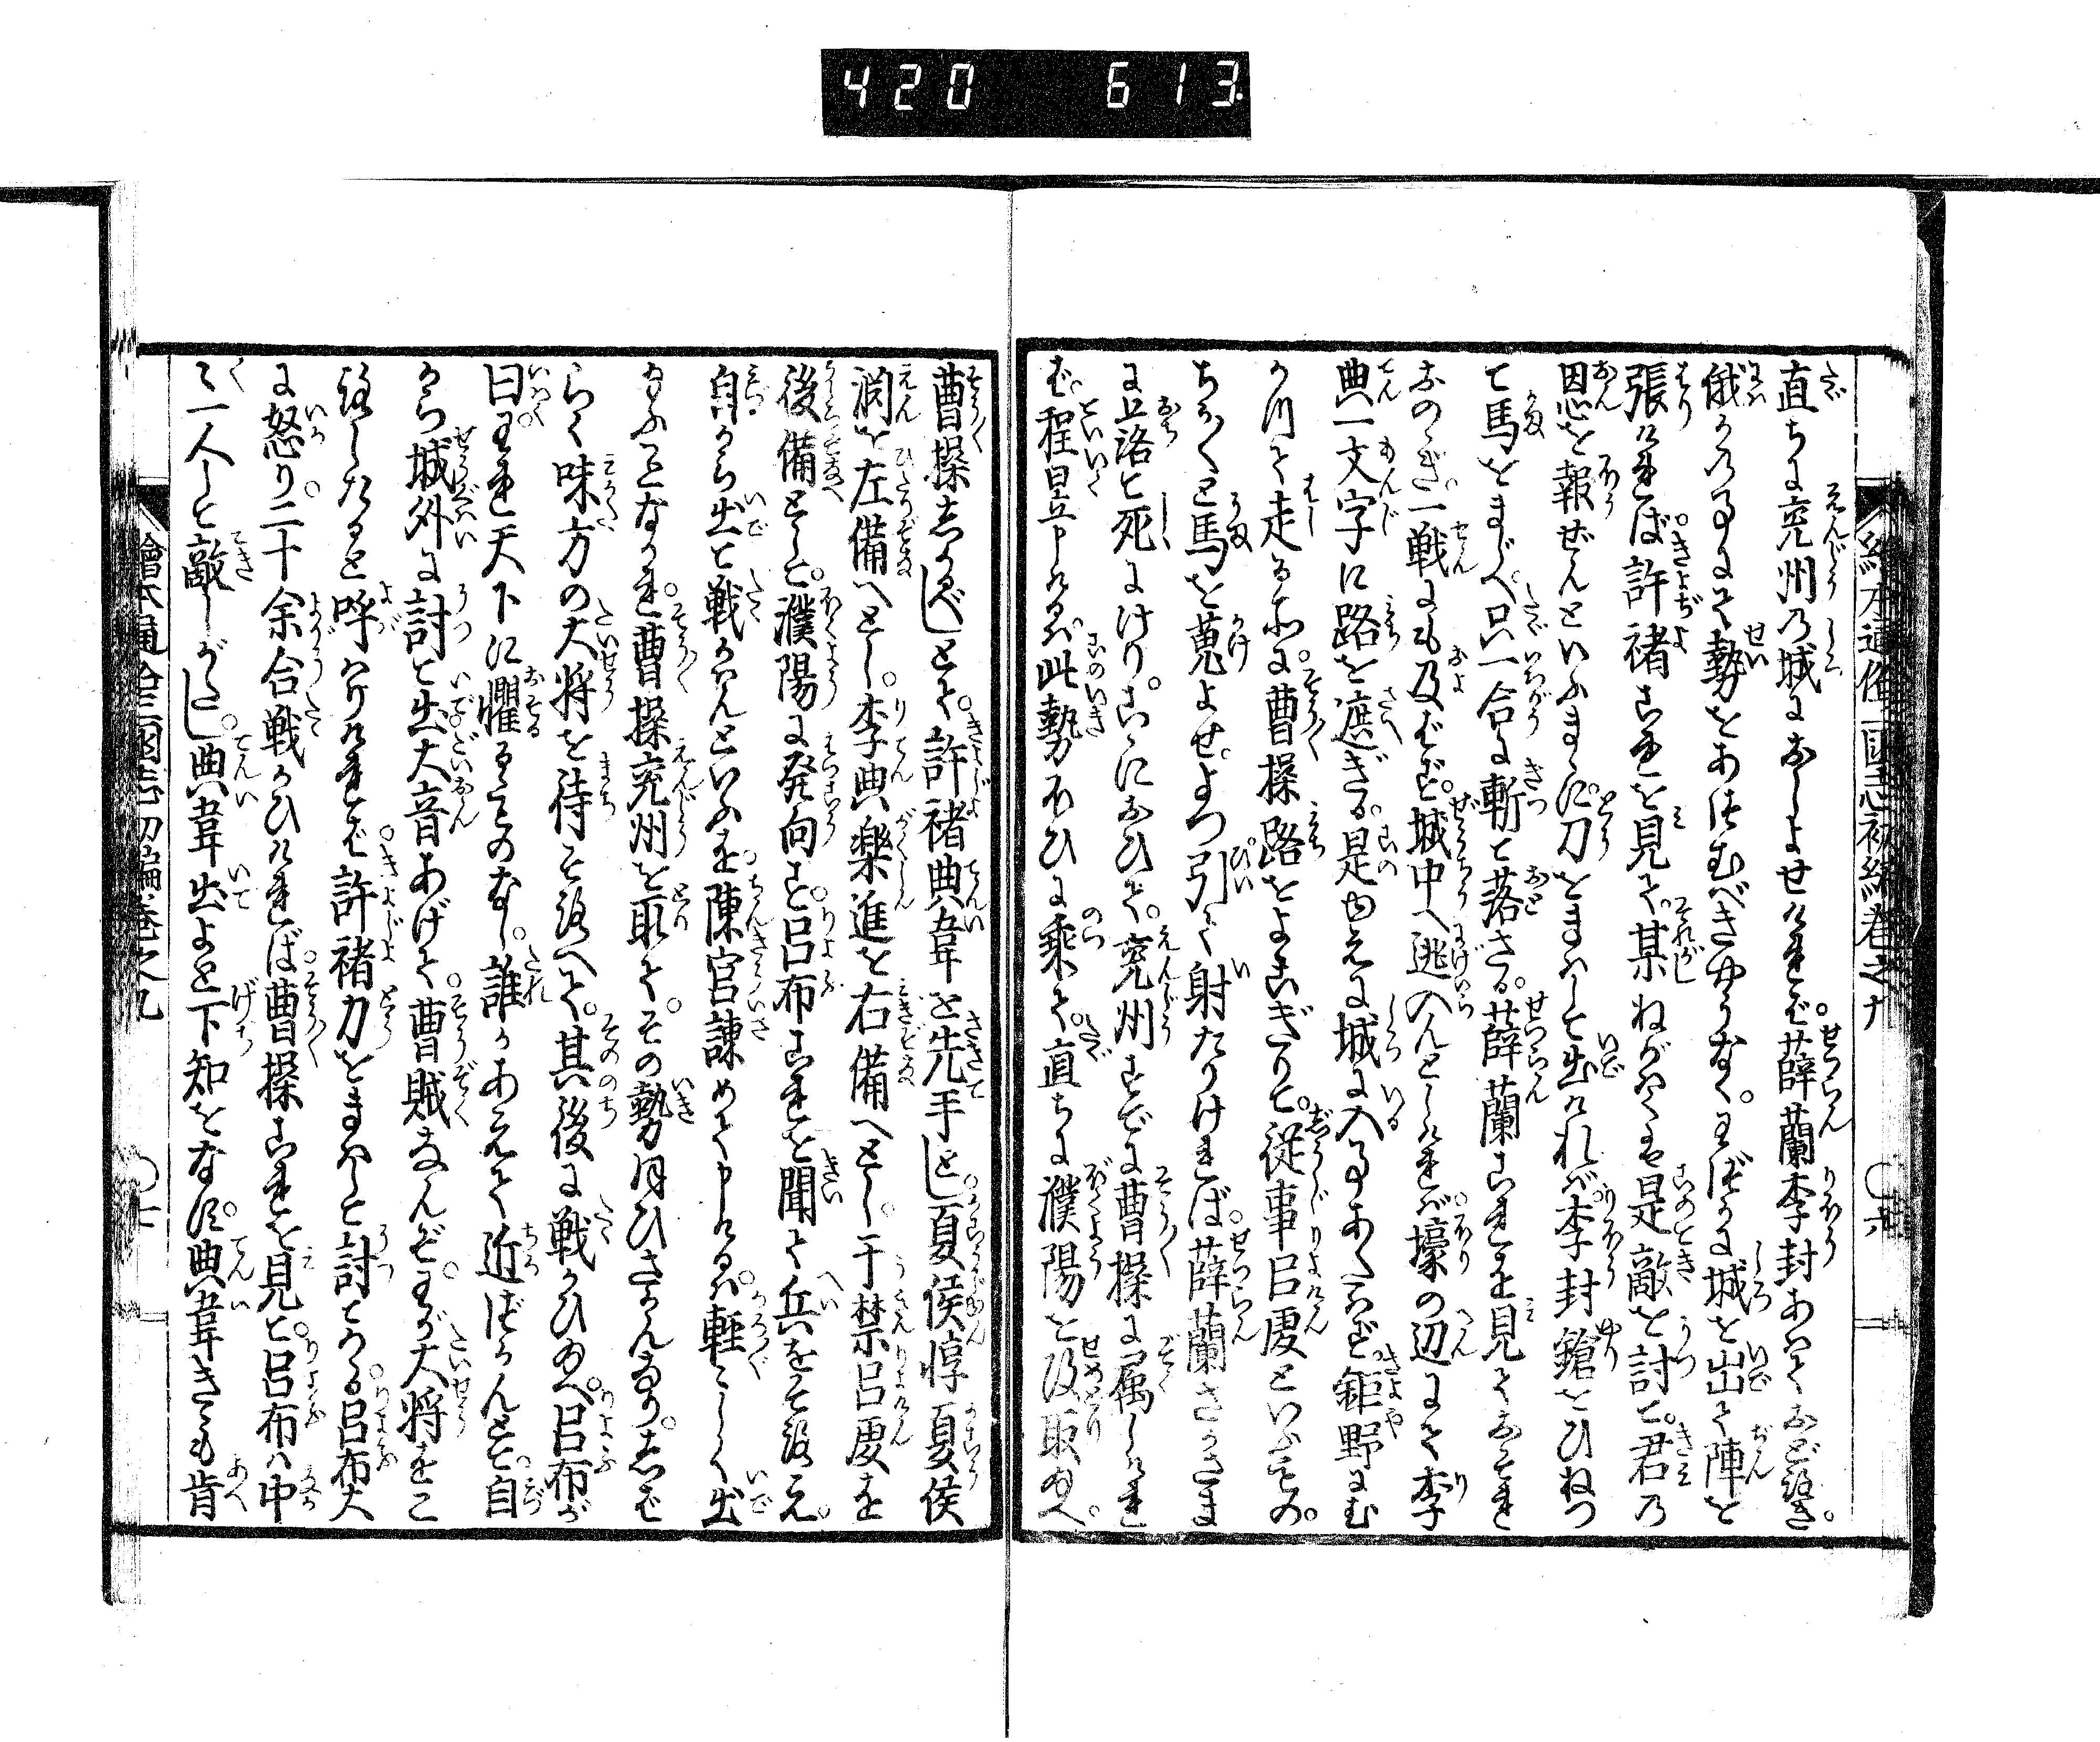 420 613
繪本通俗三國志初編巻之九
直ちに兗州の城におしよせければ。薛蘭李封あはておどろき。
俄かの事にて勢をあつむべきやうなく。わづかに城を出て陣を
張ければ。許褚これを見て。某ねがはくは是敵を討て。君の
恩を報ぜんといふまゝに。刀をまはして出ければ。李封鎗をひねつ
て馬をまじへ。只一合に斬て落さる。薛蘭これを見ておそれ
おのゝき。一戦にも及ばず。城中へ逃入んとしければ。壕の辺にて李
典一文字に路を遮ぎる。是ゆゑに城に入事あたはず。鉅野にむ
かつて走る所に。曹操路をよこぎりて。従事呂虔といふもの。
ちかく馬を蒐よせ。よつ引て射たりければ。薛蘭さかさま
に立落て死にけり。こゝにおひて。兗州すでに曹操に属しけれ
ば。程昱申けるは。此勢ひに乗て。直ちに濮陽を攻取給へ。
曹操志かるべしとて。許褚典韋を先手とし。夏侯惇夏侯
淵を左備へとし。李典樂進を右備へとし。于禁呂虔を
後備として。濮陽に発向す。呂布これを聞て兵をそろえ。
自から出て戦かはんといふを。陳宮諫めて申けるは。軽々しく出
給ふことなかれ。曹操兗州を取て。その勢ひさかんなり。志ば
らく味方の大将を待そろへて。其後に戦かひ給へ。呂布が
曰。われ天下に懼るゝものなし。誰かあえて近づかんとて。自
から城外に討て出。大音あげて。曹賊なんぞ。わが大将をこ
ろしたると呼はりければ。許褚刀をまはして討てかゝる。呂布大
に怒り。二十余合戦かひければ。曹操これを見て。呂布は中
々一人して敵しがたし。典韋出よと下知をなす。典韋きゝも肯
繪本通俗三國志初編巻之九